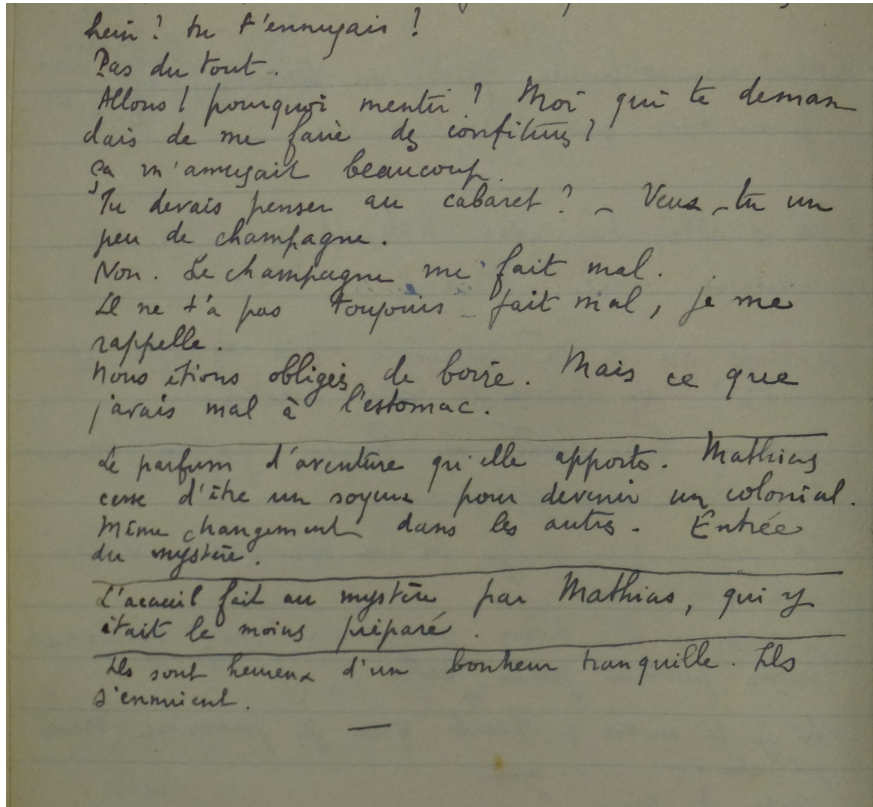 hein ? tu t'ennuyais !
Pas du tout.
Allons ! pourquoi mentir ? Moi qui te deman
dais de me faire des confitures !
ça m'amusait beaucoup.
Tu devais penser au cabaret ? – Veux-tu un
peu de champagne.
Non. Le champagne me fait mal.
Il ne t'a pas toujours fait mal, je me
rappelle.
Nous étions obligés de boire. Mais ce que
j'avais mal à l'estomac.
Le parfum d'aventure qu'elle apporte. Mathias
cesse d'être un soyeux pour devenir un colonial.
Même changement dans les autres. Entrée
du mystère.
L'accueil fait au mystère par Mathias, qui y
était le moins préparé.
Ils sont heureux d'un bonheur tranquille. Ils
s'ennuient.